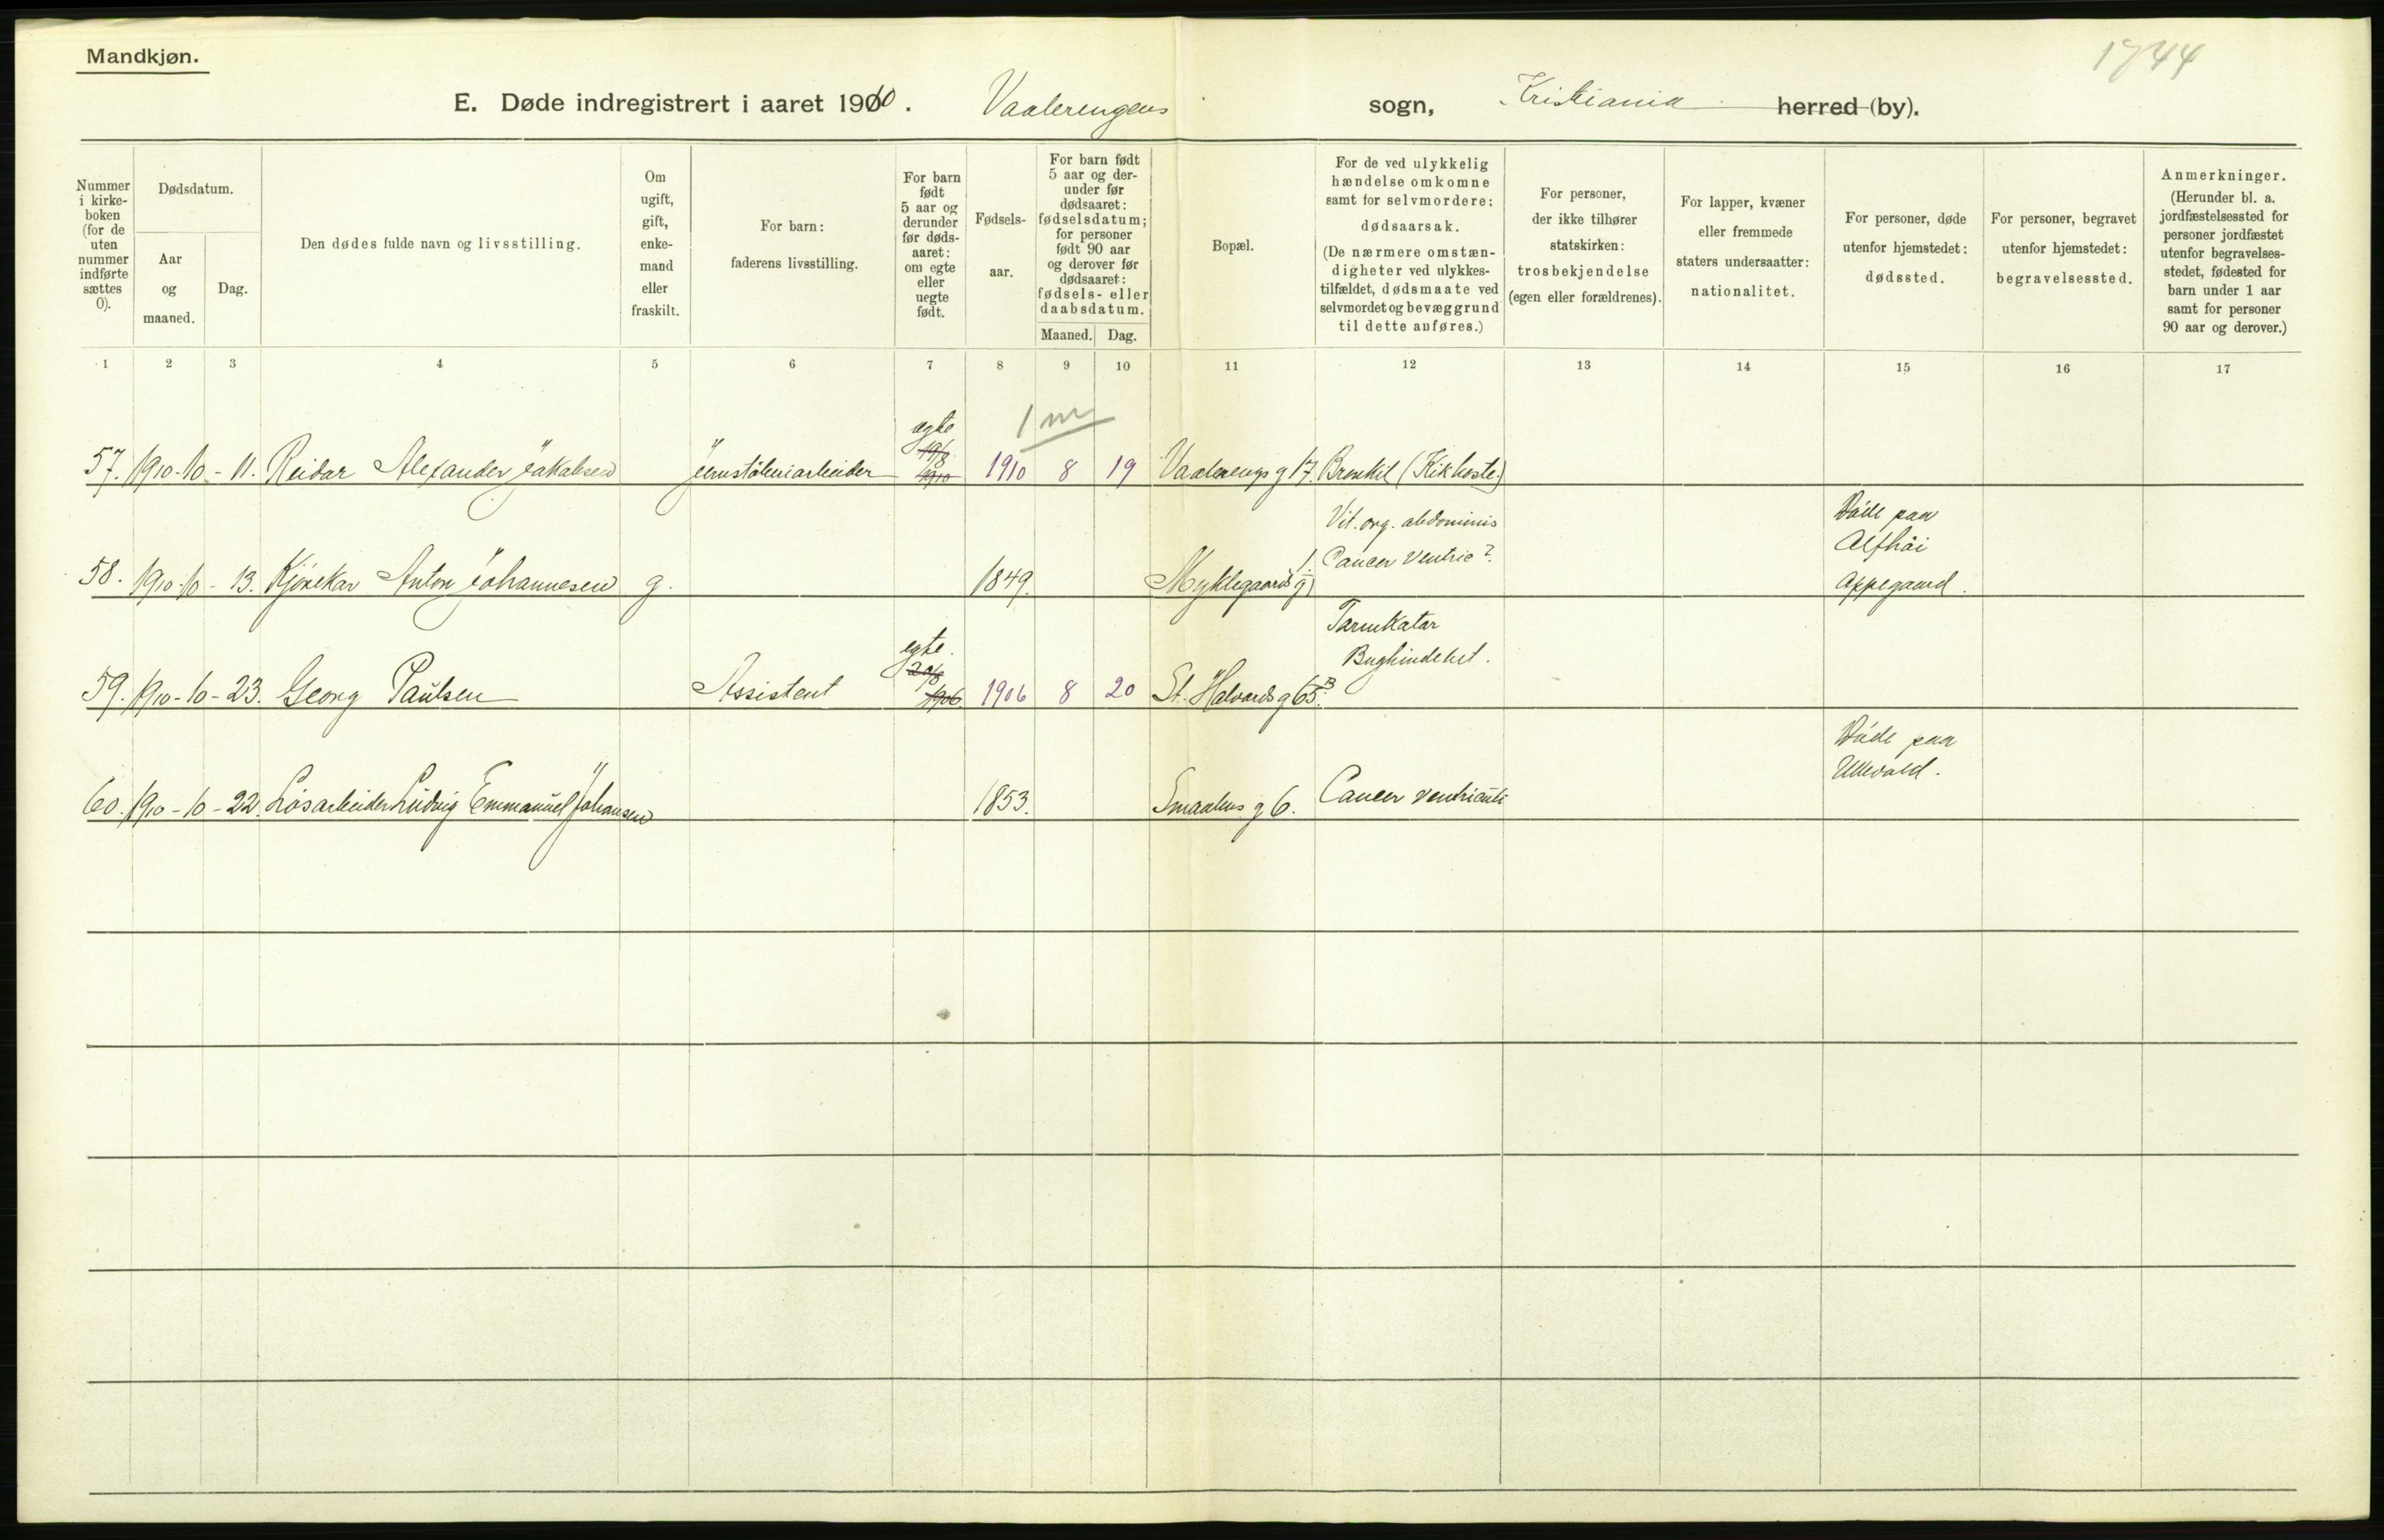 Mandkjøn.
1744
E. Døde indregistrert i aaret 1910. Vaalerengens sogn, Kristiania herred (by).
Nummer i kirke-boken (for de uten nummer indførte sættes 0).
Dødsdatum.
Aar og maaned.
Dag.
Den dødes fulde navn og livsstilling.
Om ugift, gift, enke-mand eller fraskilt.
For barn: faderens livsstilling.
For barn født 5 aar og derunder før døds-aaret: om egte eller uegte født.
Fødsels-aar.
For barn født 5 aar og der-under før dødsaaret: fødselsdatum; for personer født 90 aar og derover før dødsaaret: fødsels- eller daabsdatum.
Maaned. Dag.
Bopæl.
For de ved ulykkelig hændelse omkomne samt for selvmordere: dødsaarsak. (De nærmere omstæn-digheter ved ulykkes-tilfældet, dødsmaate ved selvmordet og bevæggrund til dette anføres.)
For personer, der ikke tilhører statskirken: trosbekjendelse (egen eller forældrenes).
For lapper, kvæner eller fremmede staters undersaatter: nationalitet.
For personer, døde utenfor hjemstedet: dødssted.
For personer, begravet utenfor hjemstedet: begravelsessted.
Anmerkninger. (Herunder bl. a. jordfæstelsessted for personer jordfæstet utenfor begravelses-stedet, fødested for barn under 1 aar samt for personer 90 aar og derover.)
1 2 3 4 5 6 7 8 9 10 11 12 13 14 15 16 17
1 m
egte
19/8
1910
57. 1910-10 - 11. Reidar Alexander Jakobsen Jernstöberiarbeider 1910 8 19 Vaalerengs g 17. Bronkit (Kikhoste)
Vit. org. abdominis
Cancer Ventric?
Döde paa
Alfhöi
Oppegaard.
58. 1910-10 - 13. Kjörekar Anton Johannesen g. 1849. Myklegaards g 1.
Tarmkatar
Bughindebet.
egte.
20/8
1906
59. 1910-10 - 23. Georg Paulsen Assistent 1906 8 20 St. Halvards g 65 B.
Döde paa
Ullevold.
60. 1910-10 - 22. Lösarbeider Ludvig Emmanuel Johansen 1853. Smaalens g 6. Cancer ventriculi